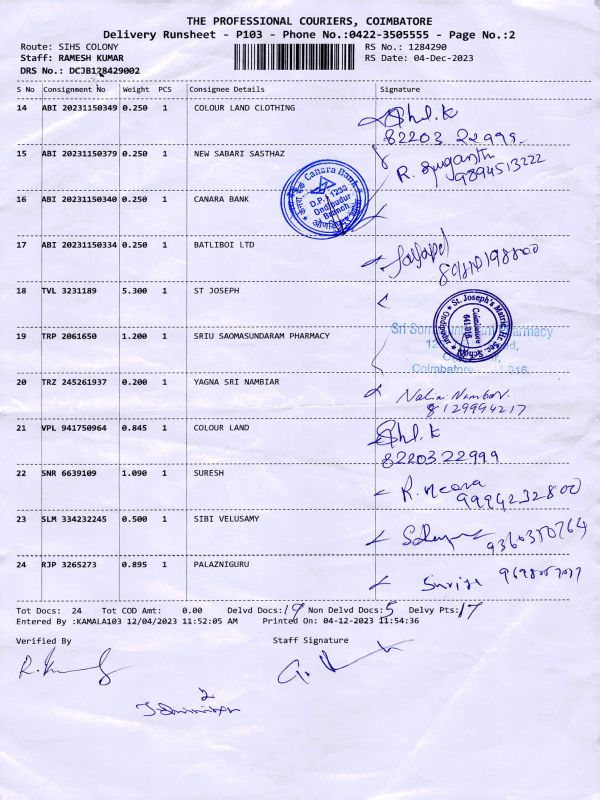 THE PROFESSIONAL COURIERS, COIMBATORE
Delivery Runsheet - P103 - Phone No.:0422-3505555 - Page No.:2
Route: SIHS COLONY RS No.: 1284290
Staff: RAMESH KUMAR RS Date: 04-Dec-2023
DRS No.: DCJB128429002
S No Consignment No Weight PCS Consignee Details Signature
14 ABI 20231150349 0.250 1 COLOUR LAND CLOTHING
82203 22999
15 ABI 20231150379 0.250 1 NEW SABARI SASTHAZ
R. Suganthi
9894513222
16 ABI 20231150340 0.250 1 CANARA BANK
Canara Bank
D.P.: 1233
Ondipudur
Branch
17 ABI 20231150334 0.250 1 BATLIBOI LTD
18 TVL 3231189 5.300 1 ST JOSEPH
St. Joseph's Matric. Hr. Sec. School
Coimbatore
641 016
19 TRP 2061650 1.200 1 SRIU SAOMASUNDARAM PHARMACY
20 TRZ 245261937 0.200 1 YAGNA SRI NAMBIAR
8129994217
21 VPL 941750964 0.845 1 COLOUR LAND
82203 22999
22 SNR 6639109 1.090 1 SURESH
R. Meera
9994232800
23 SLM 334232245 0.500 1 SIBI VELUSAMY
9360350764
24 RJP 3265273 0.895 1 PALAZNIGURU
Tot Docs: 24 Tot COD Amt: 0.00 Delvd Docs: 19 Non Delvd Docs: 5 Delvy Pts: 17
Entered By :KAMALA103 12/04/2023 11:52:05 AM Printed On: 04-12-2023 11:54:36
Verified By Staff Signature